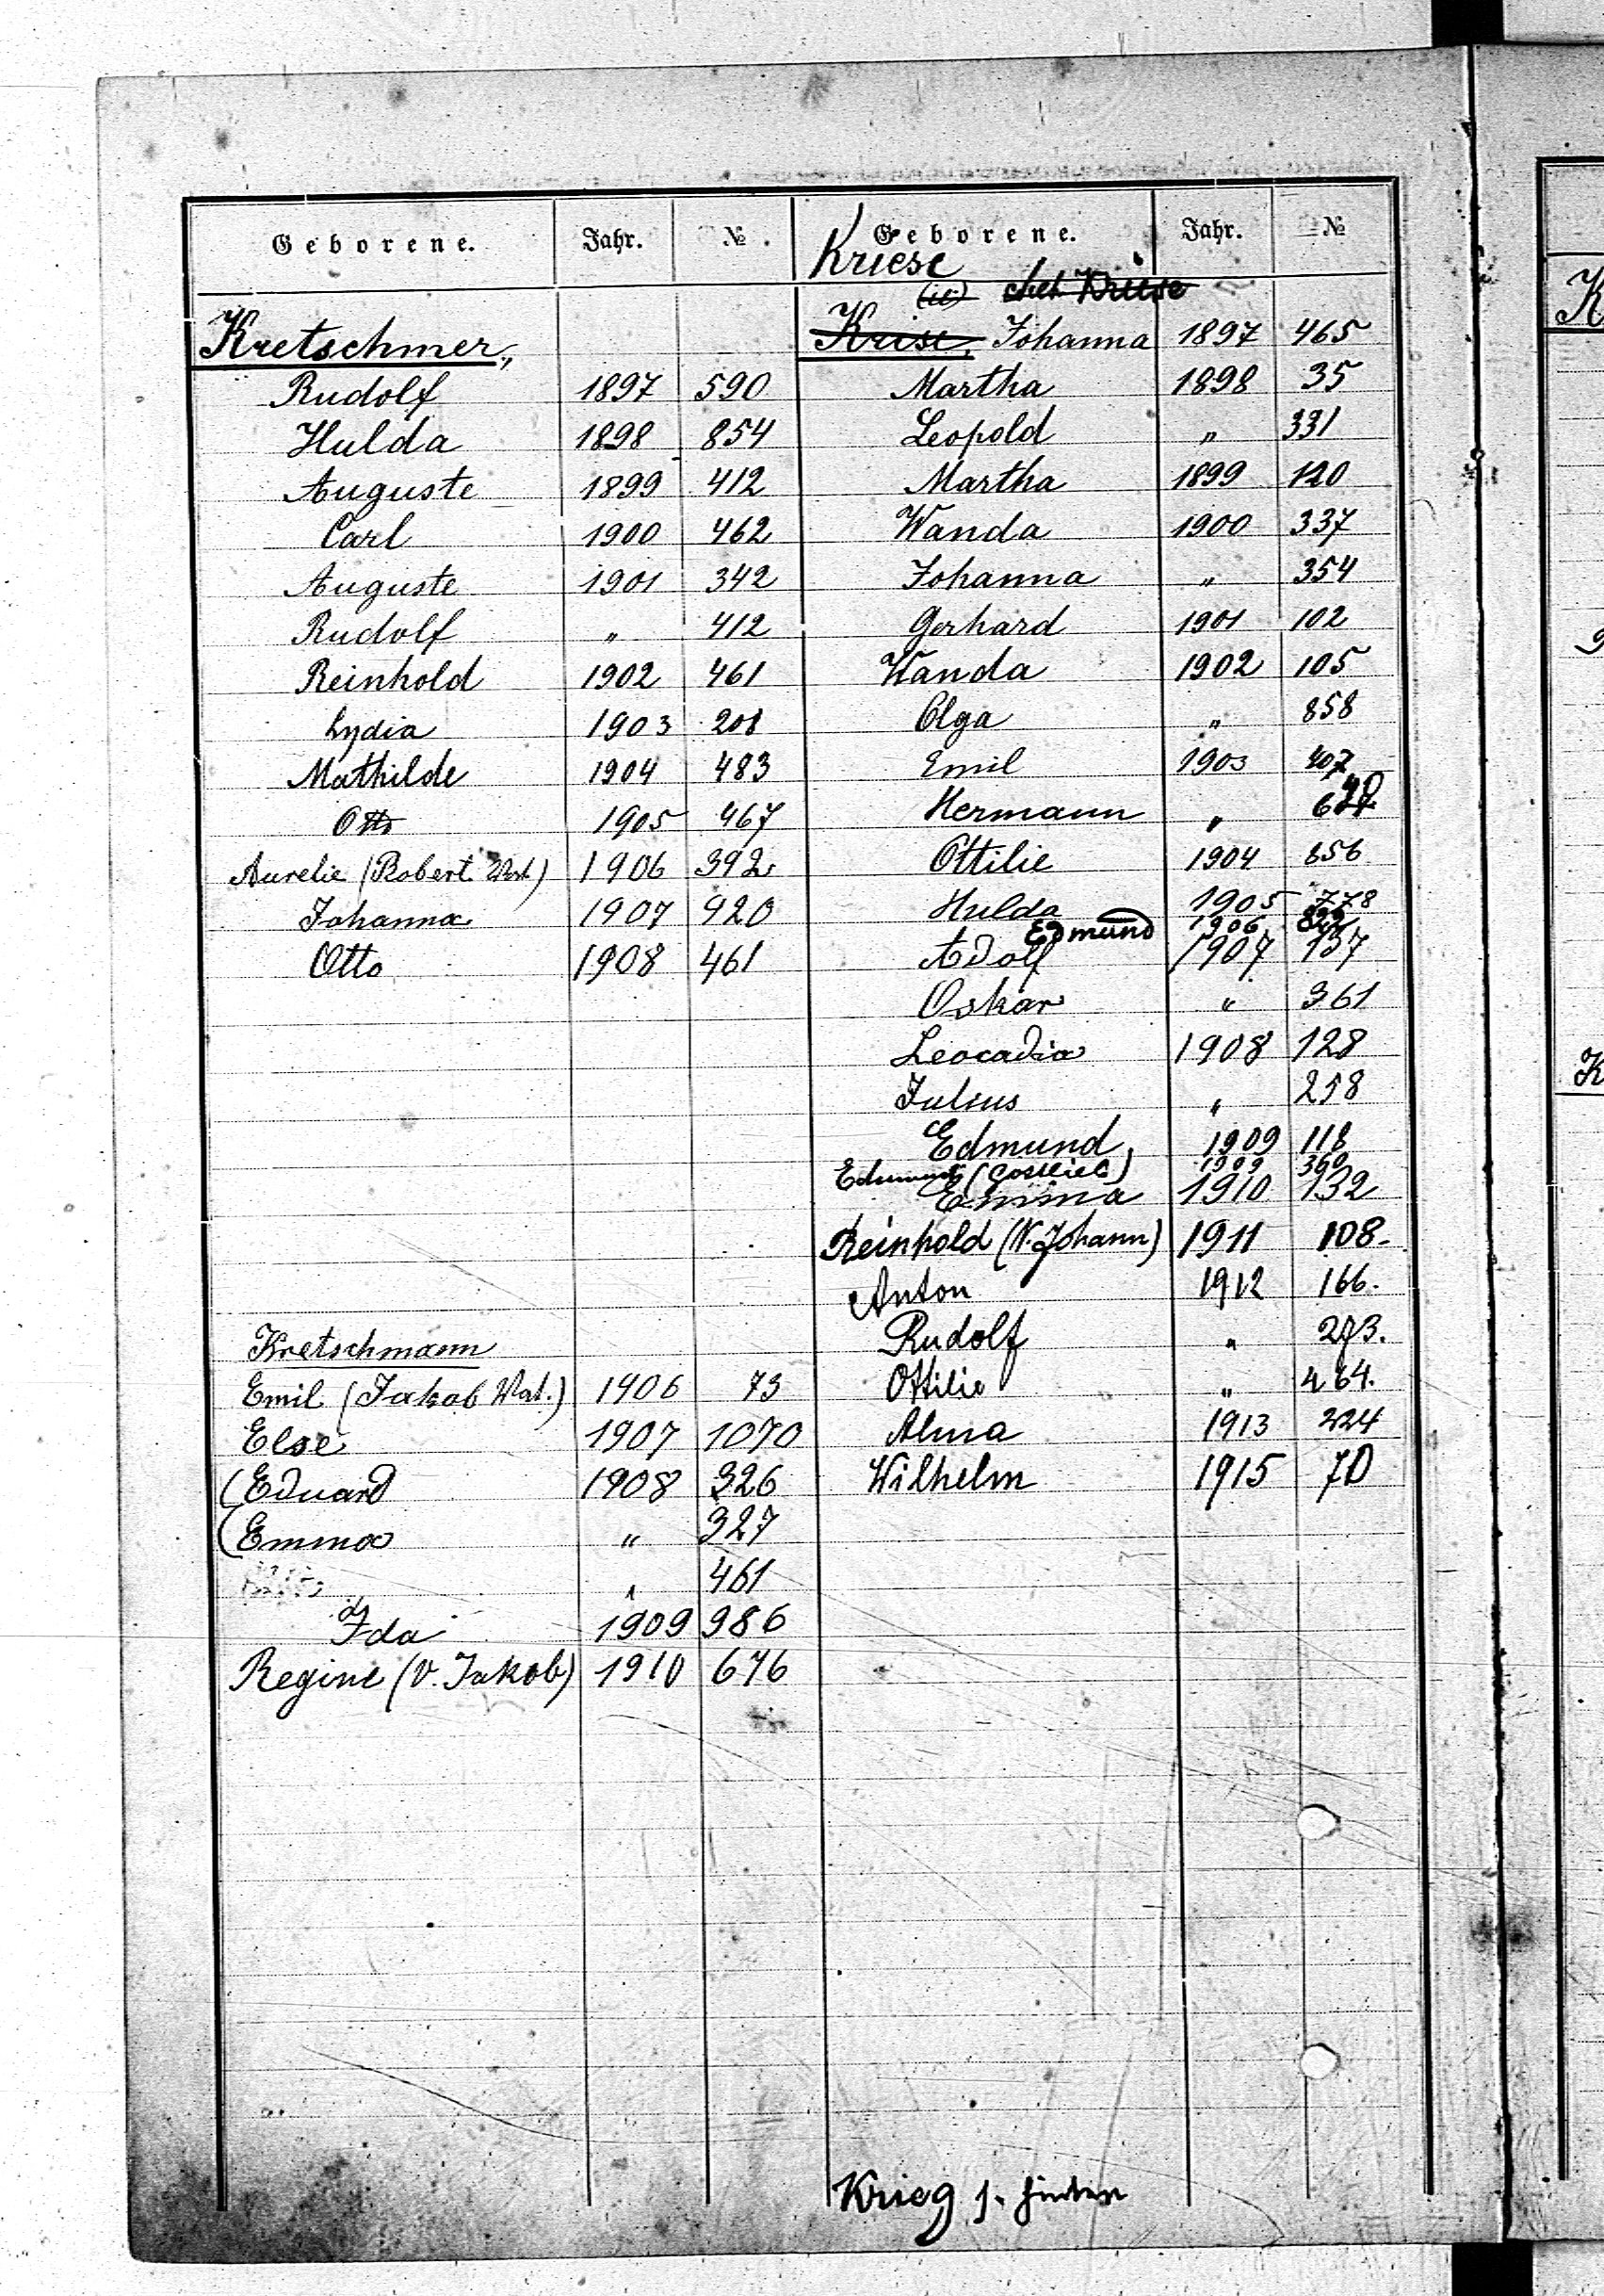 Geborene. Jahr. №
Kretschmer,,
Rudolf 1897 590
Hulda 1898 854
Auguste 1899 412
Carl 1900 462
Auguste 1901 342
Rudolf " 412
Reinhold 1902 461
Lydia 1903 208
Mathilde 1904 483
Otto 1905 467
Aurelie (Robert Vat.) 1906 392
Johanna 1907 920
Otto 1908 461
Kretschmann
Emil (Jakob Vat.) 1906 73
Else 1907 1070
(Eduard 1908 326
(Emma " 327
" 461
Ida 1909 986
Regine (V. Jakob) 1910 676
Geborene. Jahr. №
Kriese
(ie) Kriese
Krise, Johanna 1897 465
Martha 1898 35
Leopold " 331
Martha 1899 120
Wanda 1900 337
Johanna " 354
Gerhard 1901 102
Wanda 1902 105
Olga " 858
Emil 1903 407
Hermann "
Ottilie 1904 856
Hulda 1905 778
Edmund 1906
Adolf 1907 137
Oskar " 361
Leocadia 1908 128
Julius " 258
Edmund 1909 118
Edmund (Gottlieb) 1909 360
Emma 1910 132
Reinhold (V. Johann) 1911 108.
Anton 1912 166.
Rudolf " 273.
Ottilie " 464.
Alma 1913 224
Wilhelm 1915 70
Krieg s. hinten
K
K